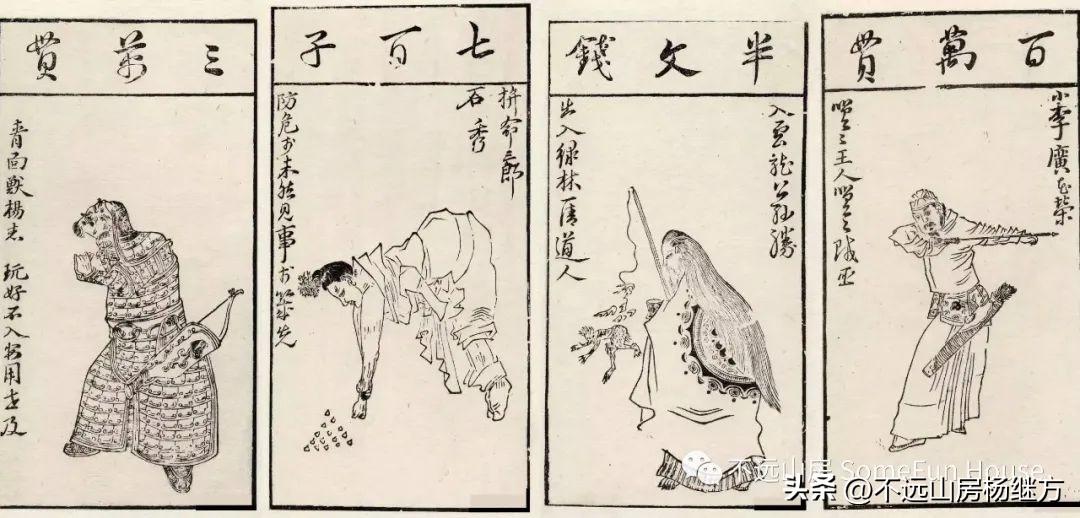 百萬貫
小李廣花榮
嗟嗟王人嗟嗟賊臣
半文錢
入雲龍公孫勝
出入緑林一清道人
七百子
拚命三郎
石秀
防危於未然見事於幾先
三萬貫
青面獸楊志 玩好不入安用世及
不远山房 SomeFun House
头条 @不远山房杨继方